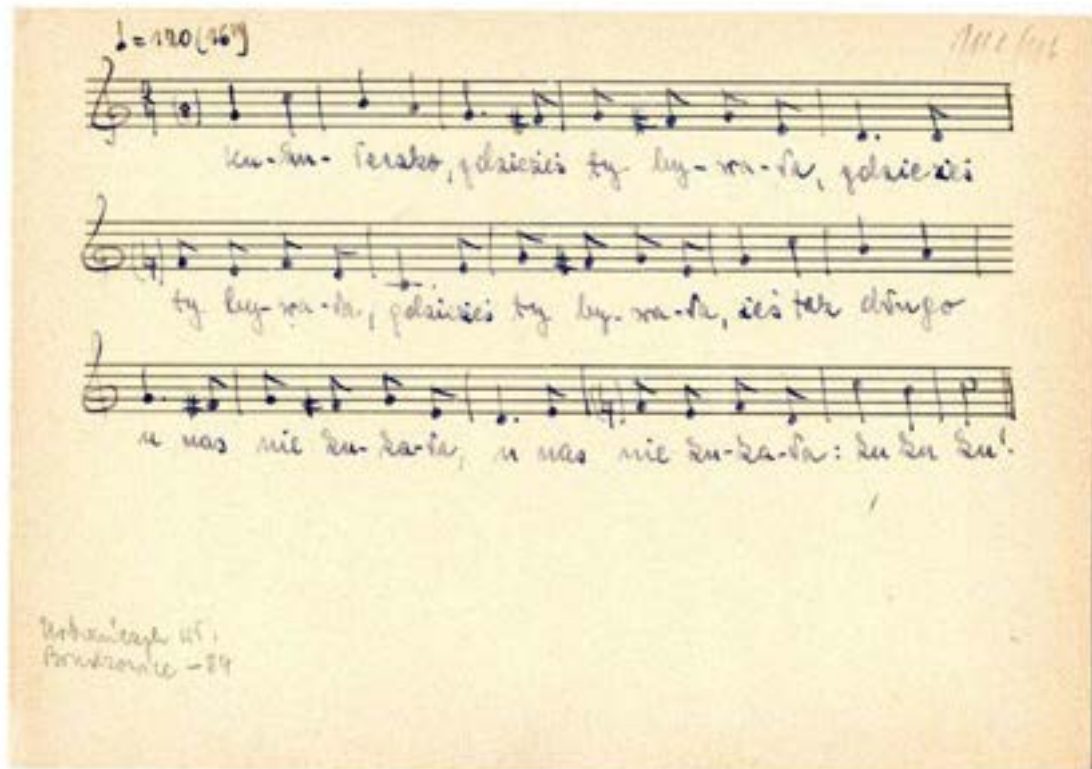 ♩=120 (16")
Ku-ku-łeczko, gdzieżeś ty by-wa-ła, gdzieżeś
ty by-wa-ła, gdzieżeś ty by-wa-ła, żeś tak długo
u nas nie ku-ka-ła, u nas nie ku-ka-ła: ku ku ku!
Urbańczyk